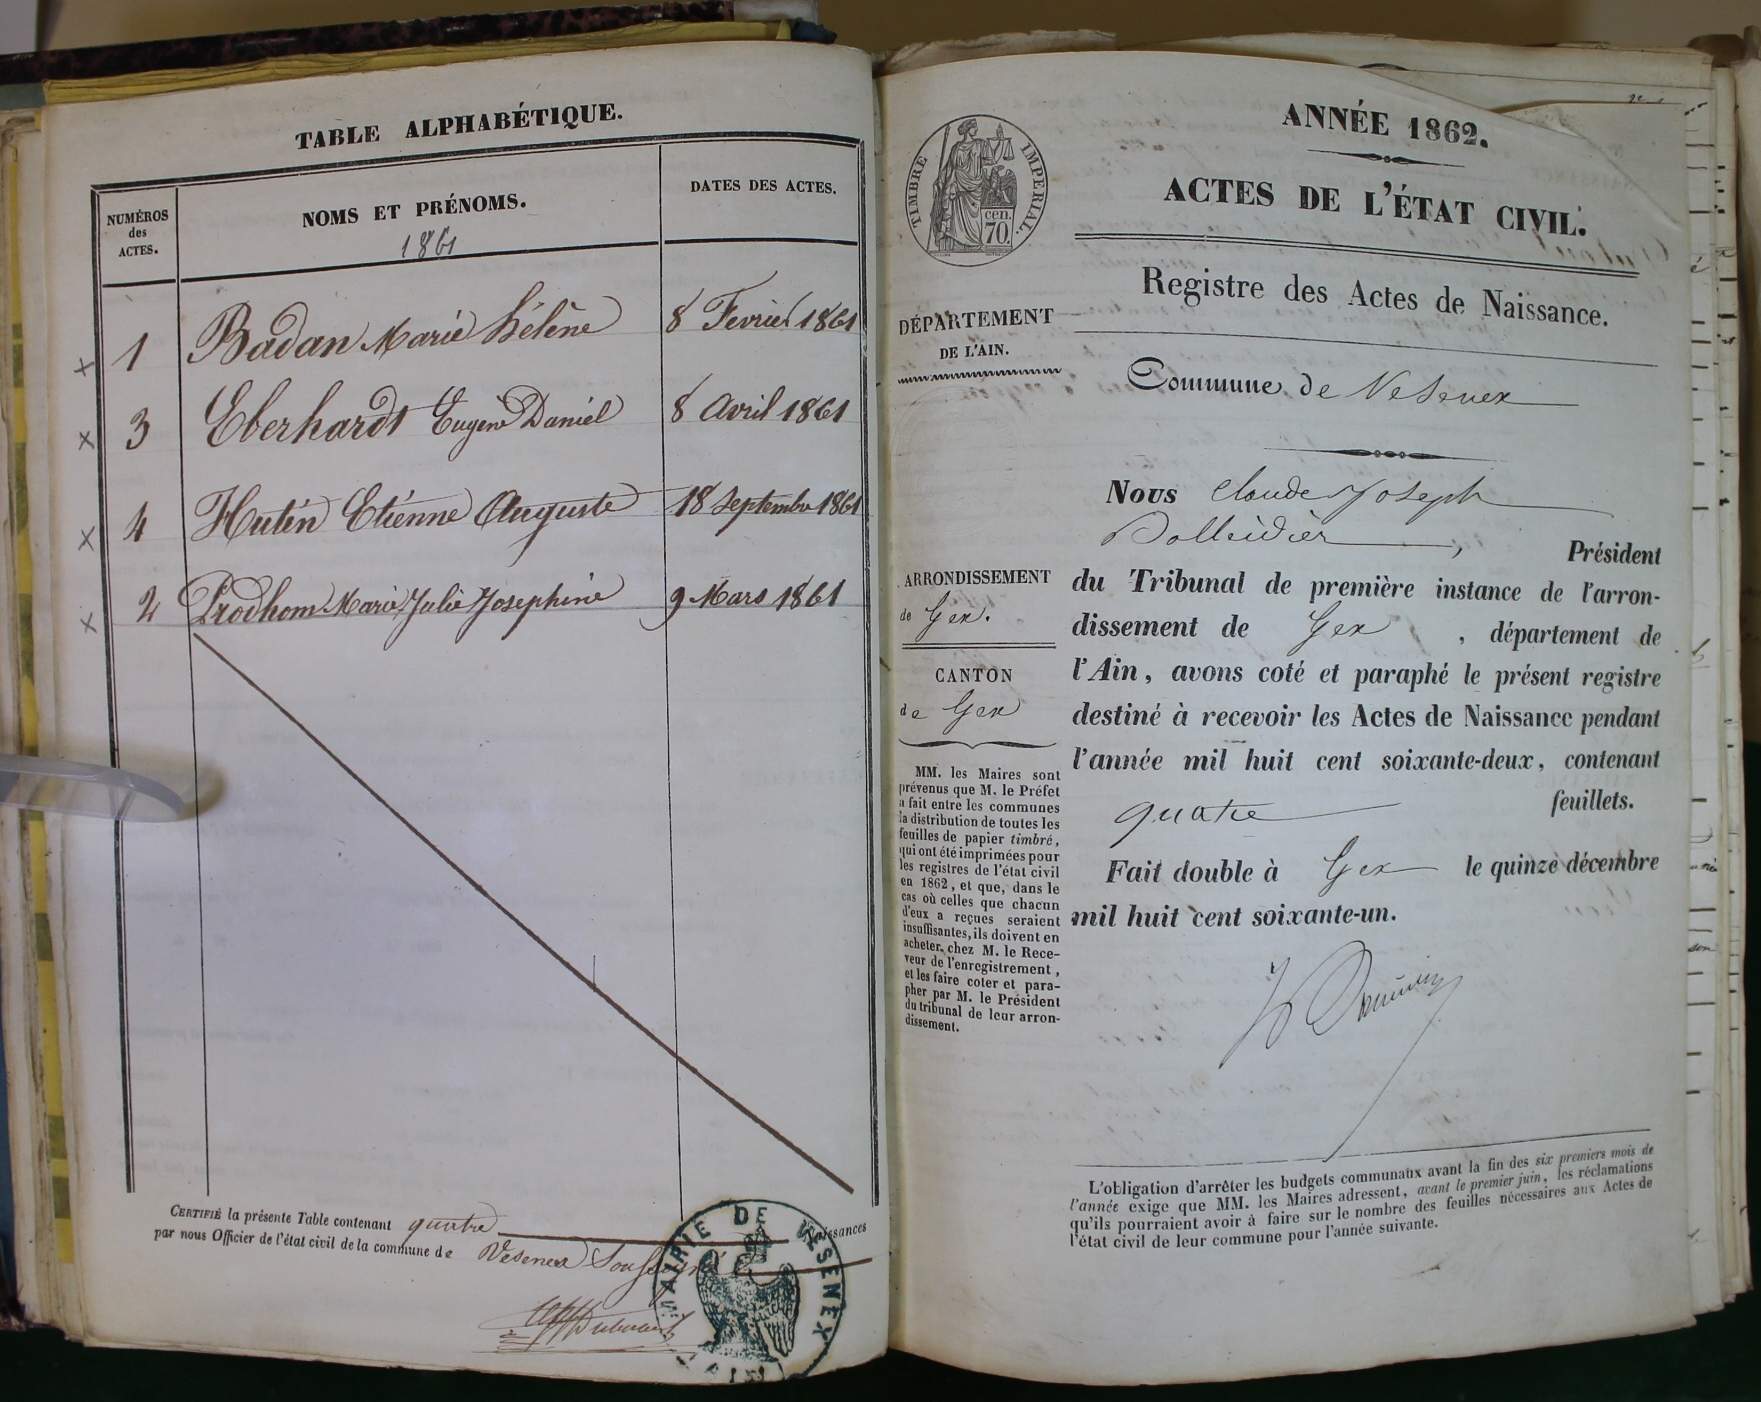 TABLE ALPHABÉTIQUE.
NUMÉROS
des
ACTES.
NOMS ET PRÉNOMS.
1861
DATES DES ACTES.
x 1 Badan Marie Hélène 8 Fevrier 1861
x 3 Eberhardt Eugène Daniel 8 Avril 1861
x 4 Hutin Etienne Auguste 18 Septembre 1861
x 2 Prodhom Marie Julie Josephine 9 Mars 1861
CERTIFIÉ la présente Table contenant quatre Naissances
par nous Officier de l'état civil de la commune de Vesenex Soussigné
MAIRIE DE VESENEX
(AIN)
ANNÉE 1862.
ACTES DE L'ÉTAT CIVIL.
TIMBRE IMPERIAL.
cen.
70.
Registre des Actes de Naissance.
DÉPARTEMENT
DE L'AIN.
Commune de Vesenex
Nous Claude Joseph
, Président
du Tribunal de première instance de l'arron-
dissement de Gex , département de
l'Ain, avons coté et paraphé le présent registre
destiné à recevoir les Actes de Naissance pendant
l'année mil huit cent soixante-deux, contenant
quatre feuillets.
Fait double à Gex le quinze décembre
mil huit cent soixante-un.
ARRONDISSEMENT
de Gex.
CANTON
de Gex
MM. les Maires sont
prévenus que M. le Préfet
a fait entre les communes
la distribution de toutes les
feuilles de papier timbré,
qui ont été imprimées pour
les registres de l'état civil
en 1862, et que, dans le
cas où celles que chacun
d'eux a reçues seraient
insuffisantes, ils doivent en
acheter, chez M. le Rece-
veur de l'enregistrement,
et les faire coter et para-
pher par M. le Président
du tribunal de leur arron-
dissement.
L'obligation d'arrêter les budgets communaux avant la fin des six premiers mois de
l'année exige que MM. les Maires adressent, avant le premier juin, les réclamations
qu'ils pourraient avoir à faire sur le nombre des feuilles nécessaires aux Actes de
l'état civil de leur commune pour l'année suivante.